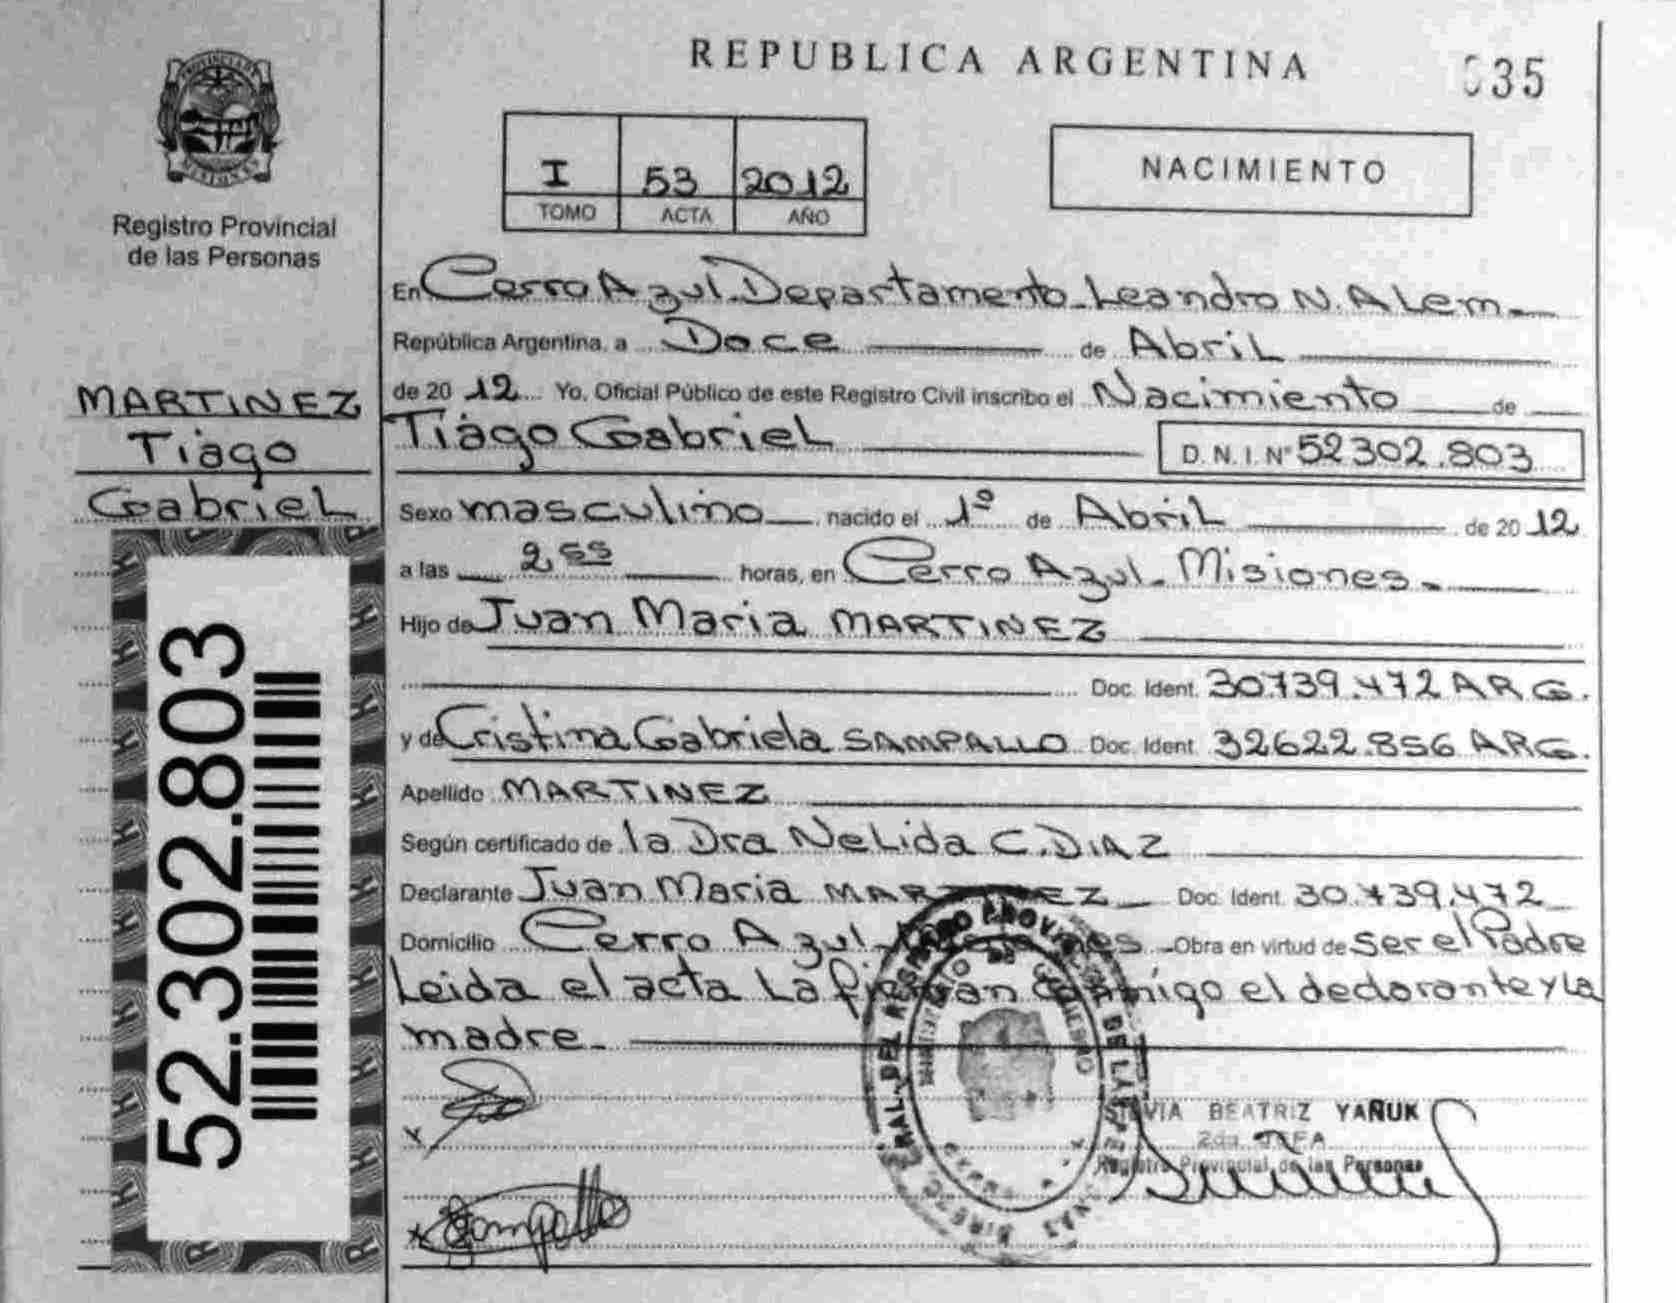 REPUBLICA ARGENTINA
035
PROVINCIA DE
MISIONES
Registro Provincial
de las Personas
I 53 2012
TOMO ACTA AÑO
NACIMIENTO
En Cerro Azul. Departamento Leandro N. ALem.
República Argentina, a Doce de AbriL
de 20 12 Yo, Oficial Público de este Registro Civil inscribo el Nacimiento de
Tiago GabrieL D.N.I. Nº 52302.803
MARTINEZ
Tiago
GabrieL
Sexo masculino nacido el 1º de AbriL de 20 12
a las 2,55 horas, en Cerro Azul. Misiones.
Hijo de Juan Maria MARTINEZ
Doc. Ident. 30739.472 ARG.
y de Cristina Gabriela SAMPALLO Doc. Ident. 32622.856 ARG.
Apellido MARTINEZ
Según certificado de la Dra NeLida C. DIAZ
Declarante Juan Maria MARTINEZ Doc. Ident. 30.739.472
Domicilio Cerro Azul Obra en virtud de ser el Padre
Leida el acta La firman conmigo el declarante y La
madre.
52.302.803
BEATRIZ YAÑUK
2da JEFA
Registro Provincial de las Personas
Sampallo